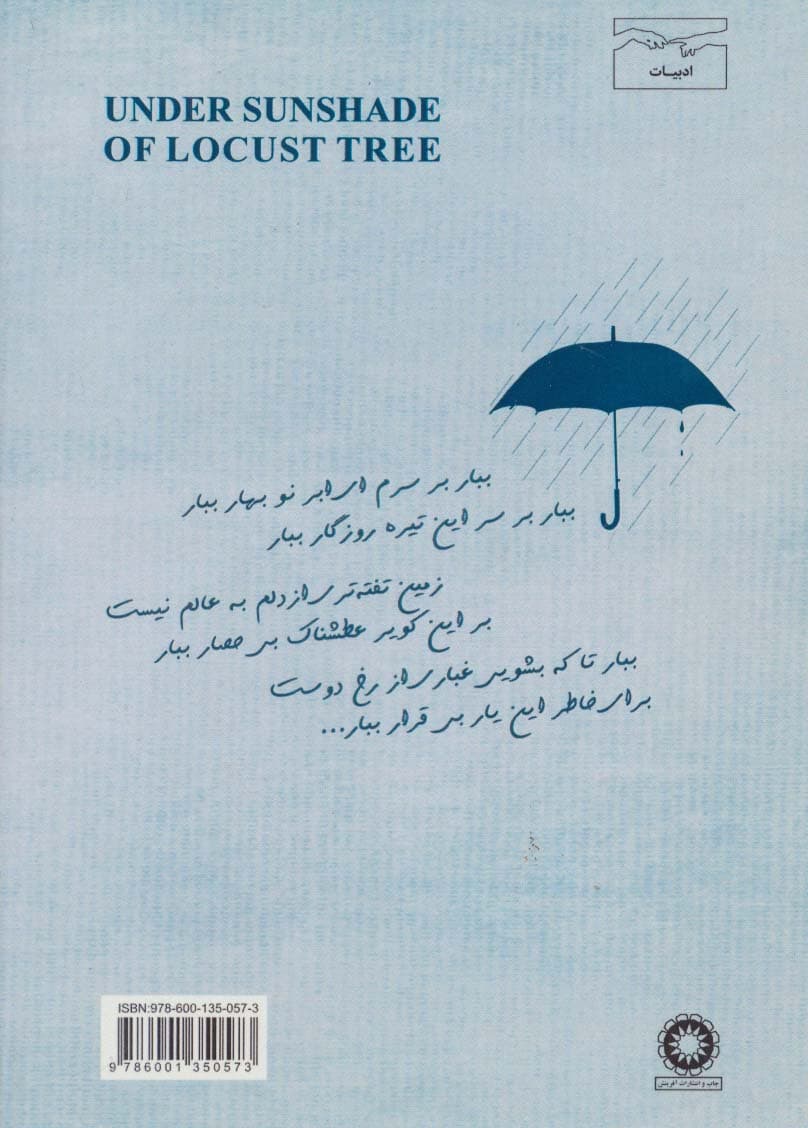 ادبیات
UNDER SUNSHADE
OF LOCUST TREE
ببار بر سرم ای ابر نو بهار ببار
ببار بر سر این تیره روزگار ببار
زمین تفته‌تری از دلم به عالم نیست
بر این کویر عطشناک بی حصار ببار
ببار تا که بشویی غباری از رخ دوست
برای خاطر این یار بی قرار ببار...
ISBN:978-600-135-057-3
9 786001 350573
چاپ و انتشارات آفرینش